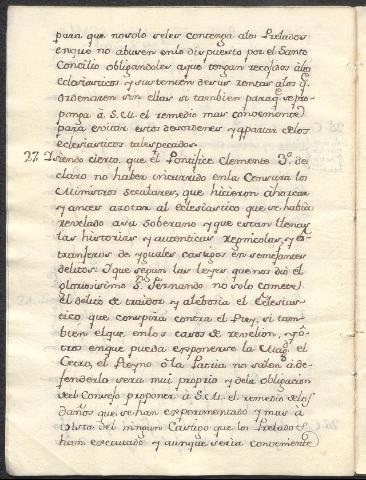 para que no solo seles contenga alos Prelados
en que no abusen en lo dispuesto por el Santo
Concilio obligandoles aque tengan recojidos àlos
eclesiasticos y sustenten de sus rentas àlos q.
ordenaren sin ellas si tambien paraq. se pro-
ponga à S. M. el remedio mas conveniente
para evitar estos desordenes y apartar delos
eclesiasticos tales pecados.
27. Siendo cierto, que el Pontifice Clemente 3.º de
claro no haber incurrido en la Censura los
Ministros seculares, que hicieron ahorcar
y antes azotar al eclesiastico que se habia
revelado a su soberano y que estan llenas
las historias y autenticas regnicolas, y ex
trangeros de yguales castigos en semejantes
delitos: Y que segun las leyes que nos dió el
gloriosisimo S.n Fernando no solo comete
el delito de traidor y alebosia el Eclesias-
tico que conspira contra el Rey, si tam-
bien el que en los casos de revelion, y o-
tros en que pueda exponerse la Mag.d el
Cetro, el Reyno ò la Patria no salen à de-
fenderlo sera mui proprio y dela obligacion
del Consejo proponer à S. M. el remedio delos
daños que se han experimentado y mas à
vista del ningun Castigo que los Prelados
han executado y aunque seria conveniente